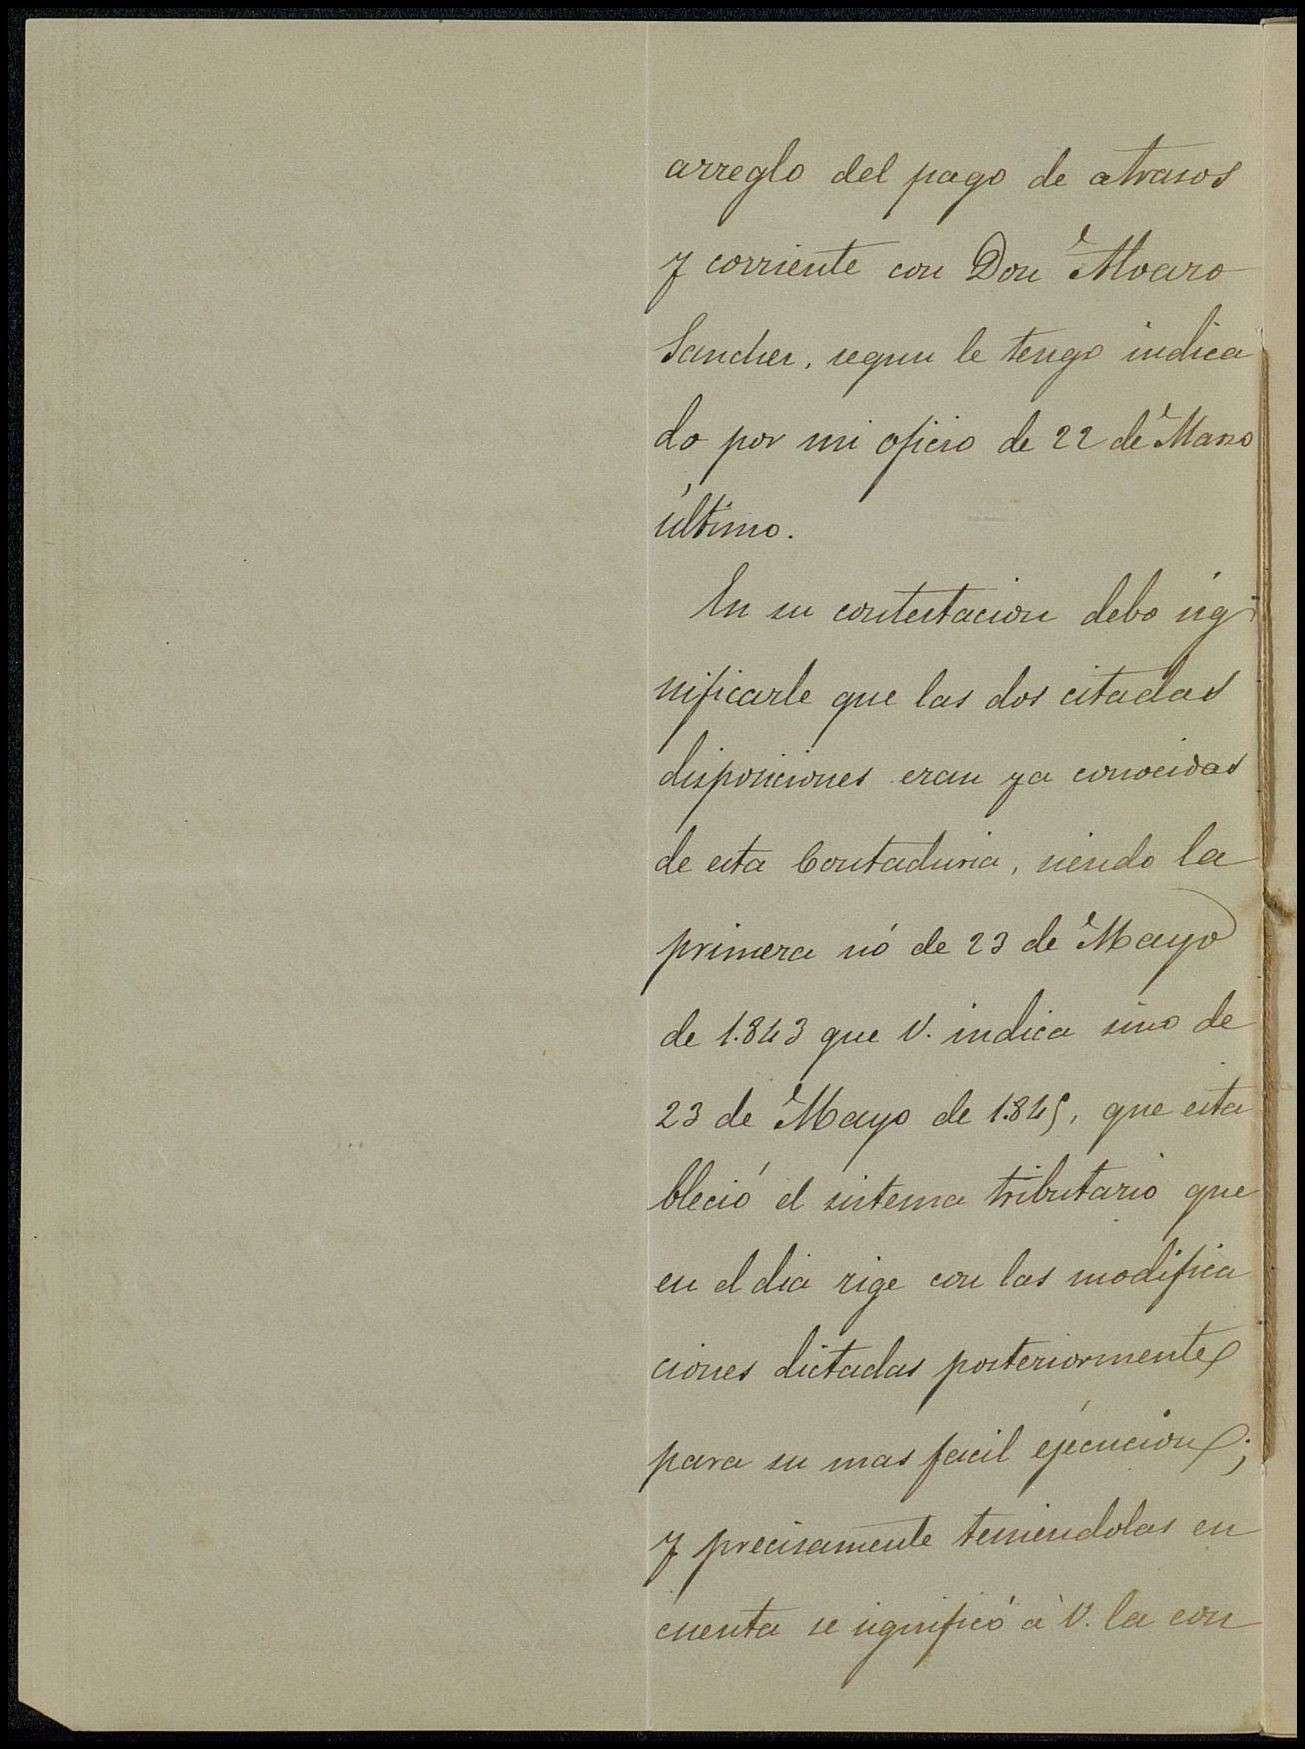 arreglo del pago de atrasos
y corriente con Don Alvaro
Sanchez, segun le tengo indica
do por mi oficio de 22 de Marzo
último.
En su contestacion debo sig-
nificarle que las dos citadas
disposiciones eran ya conocidas
de esta Contaduria, siendo la
primera nó de 23 de Mayo
de 1.843 que V. indica sino de
23 de Mayo de 1.845, que esta
bleció el sistema tributario que
en el dia rige con las modifica
ciones dictadas posteriormente
para su mas facil ejecucion;
y precisamente teniendolas en
cuenta se significó à V. la con